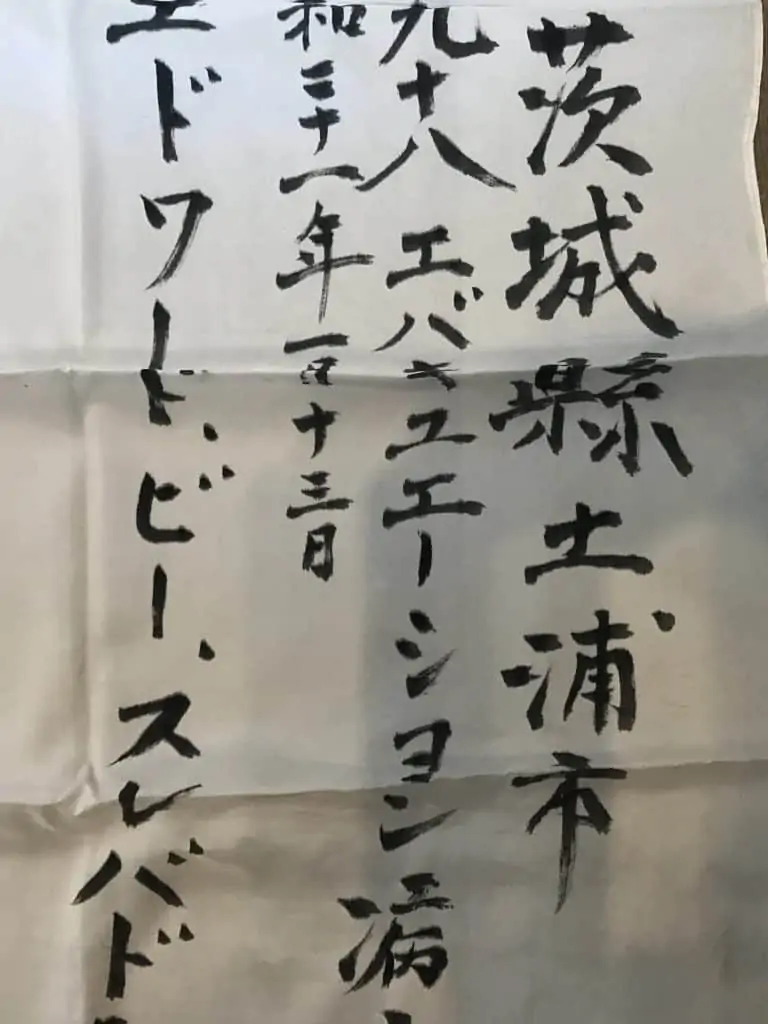 茨城縣土浦市
九十八 エバキユエーシヨン病
和三十一年一月十三日
エドワード、ビー、スレバド